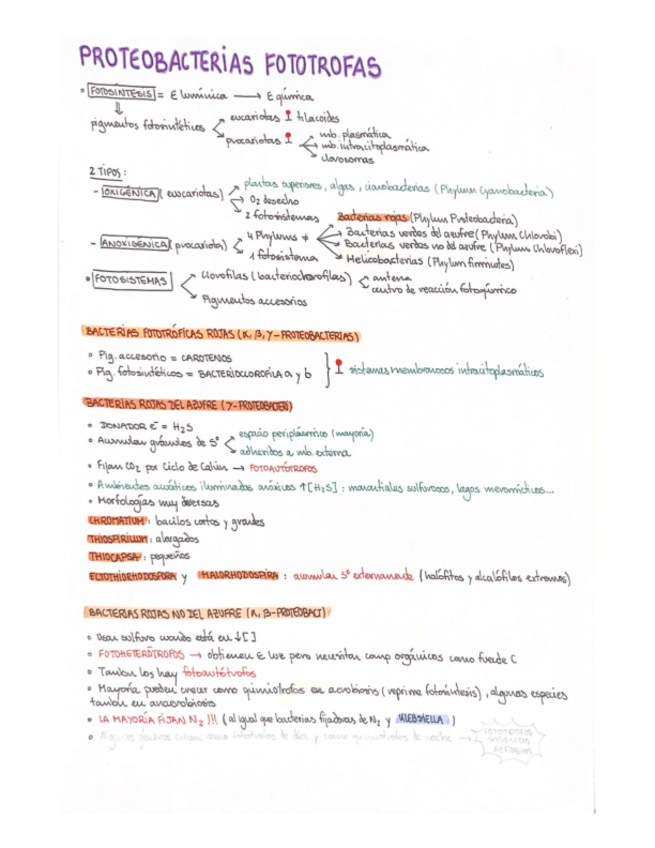 PROTEOBACTERIAS FOTOTROFAS
• FOTOSÍNTESIS = E lumínica → E química
pigmentos fotosintéticos < eucariotas tilacoides
procariotas < mb. plasmática
mb. intracitoplasmática
clorosomas
2 TIPOS:
- OXIGÉNICA (eucariotas) plantas superiores, algas, cianobacterias (Phylum Cyanobacteria)
O2 desecho
2 fotosistemas
- ANOXIGÉNICA (procariotas) 4 Phylums ≠ Bacterias rojas (Phylum Proteobacteria)
Bacterias verdes del azufre (Phylum Chlorobi)
Bacterias verdes no del azufre (Phylum Chloroflexi)
Helicobacterias (Phylum firmicutes)
1 fotosistema
• FOTOSISTEMAS < Clorofilas (bacterioclorofilas) < antena
centro de reacción fotoquímico
Pigmentos accesorios
BACTERIAS FOTOTRÓFICAS ROJAS (α, β, γ-PROTEOBACTERIAS)
• Pig. accesorio = CAROTENOS
• Pig. fotosintéticos = BACTERIOCLOROFILA a y b } sistemas membranosos intracitoplasmáticos
BACTERIAS ROJAS DEL AZUFRE (γ-PROTEOBACTERI)
• DONADOR e- = H2S
• Acumulan gránulos de S° < espacio periplásmico (mayoría)
adheridos a mb. externa
• Fijan CO2 por Ciclo de Calvin → FOTOAUTÓTROFOS
• Ambientes acuáticos iluminados anóxicos ↑[H2S]: manantiales sulfurosos, lagos meromícticos...
• Morfologías muy diversas
CHROMATIUM: bacilos cortos y grandes
THIOSPIRILLUM: alargados
THIOCAPSA: pequeños
ECTOTHIORHODOSPORA y HALORHODOSPIRA: acumulan S° externamente (halófitos y alcalófilos extremos)
BACTERIAS ROJAS NO DEL AZUFRE (α, β-PROTEOBACT)
• Usan sulfuro cuando está en ↓[ ]
• FOTOHETERÓTROFOS → obtienen E luz pero necesitan comp orgánicos como fuente C
• También los hay fotoautótrofos
• Mayoría pueden crecer como quimiotrofos en aerobiosis (reprime fotosíntesis), algunas especies
también en anaerobiosis
• LA MAYORÍA FIJAN N2 !!! (al igual que bacterias fijadoras de N2 y KLEBSIELLA)
• Algunos géneros crecen como fototrofos de día y como quimiotrofos de noche → FOTOTROFOS
ANOXIGÉNICOS
AEROBIOS